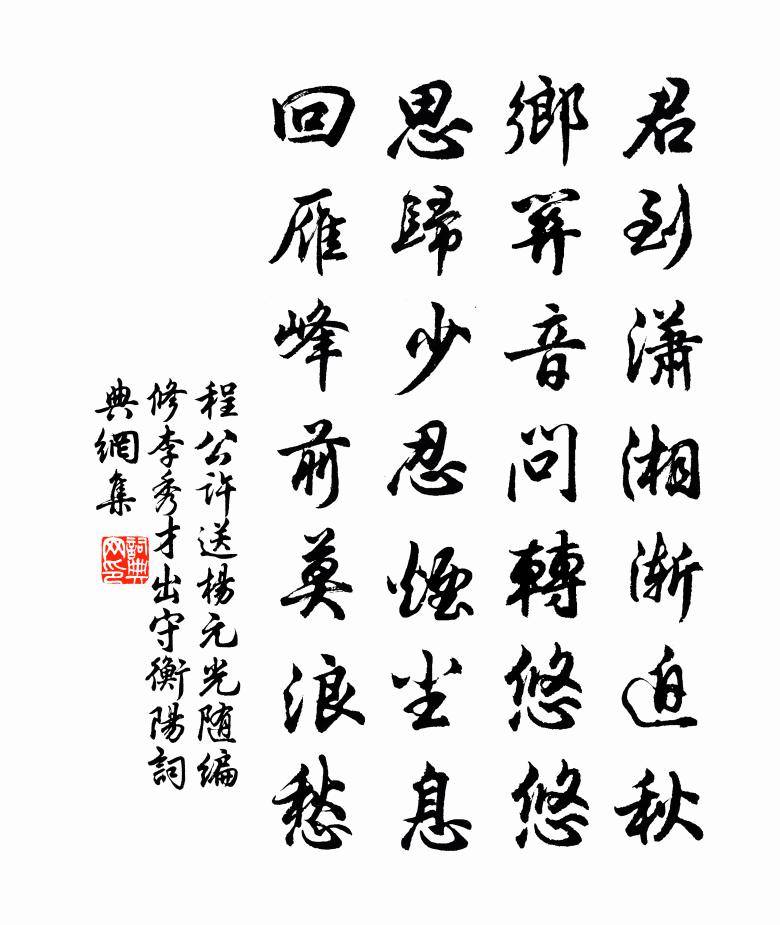 君到瀟湘漸迫秋
鄉關音問轉悠悠
思歸少忍煙尘息
回雁峰前莫浪愁
程公許送楊元光随編
修李秀才出守衡陽詞
典網集
詞典
网印